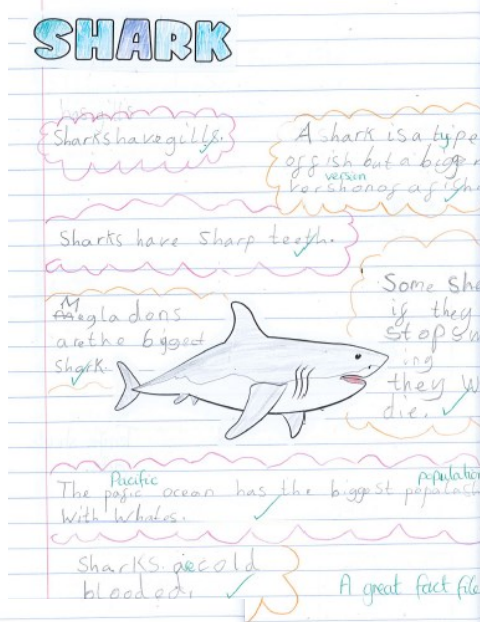 SHARK
has gills
Sharks have gills.
A shark is a type
of fish but a bigger
version
vershon of a fish
Sharks have sharp teeth.
M
megladons
are the biggest
shark.
Some sha
if they
stop sw
ing
they w
die.
Pacific
population
The pasific ocean has the biggest
with Whales.
Sharks are cold
blooded.
A great fact file